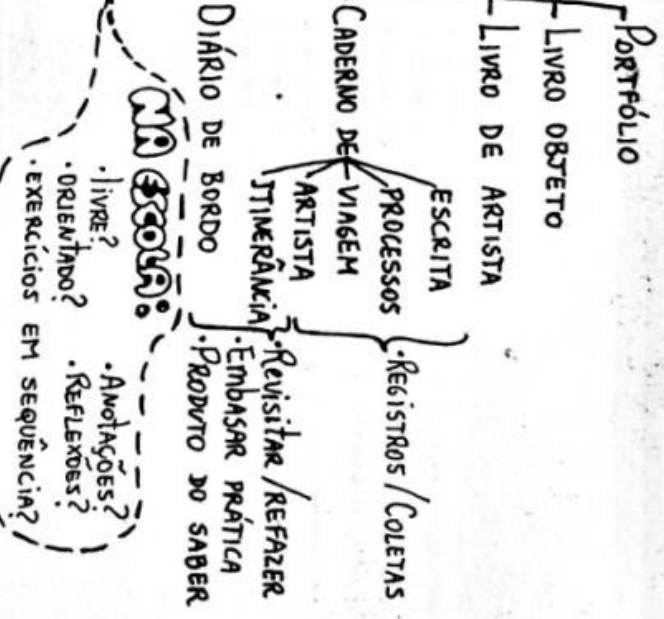 PORTFÓLIO
LIVRO OBJETO
LIVRO DE ARTISTA
CADERNO DE
ESCRITA
PROCESSOS
VIAGEM
ARTISTA
ITINERÂNCIA
· REGISTROS / COLETAS
DIÁRIO DE BORDO
· Revisitar / REFAZER
· EmBASAR PRÁTICA
· PRODUTO DO SABER
NA ESCOLA:
· LIVRE?
· ORIENTADO?
· EXERCÍCIOS EM SEQUÊNCIA?
· ANOTAÇÕES?
· REFLEXÕES?